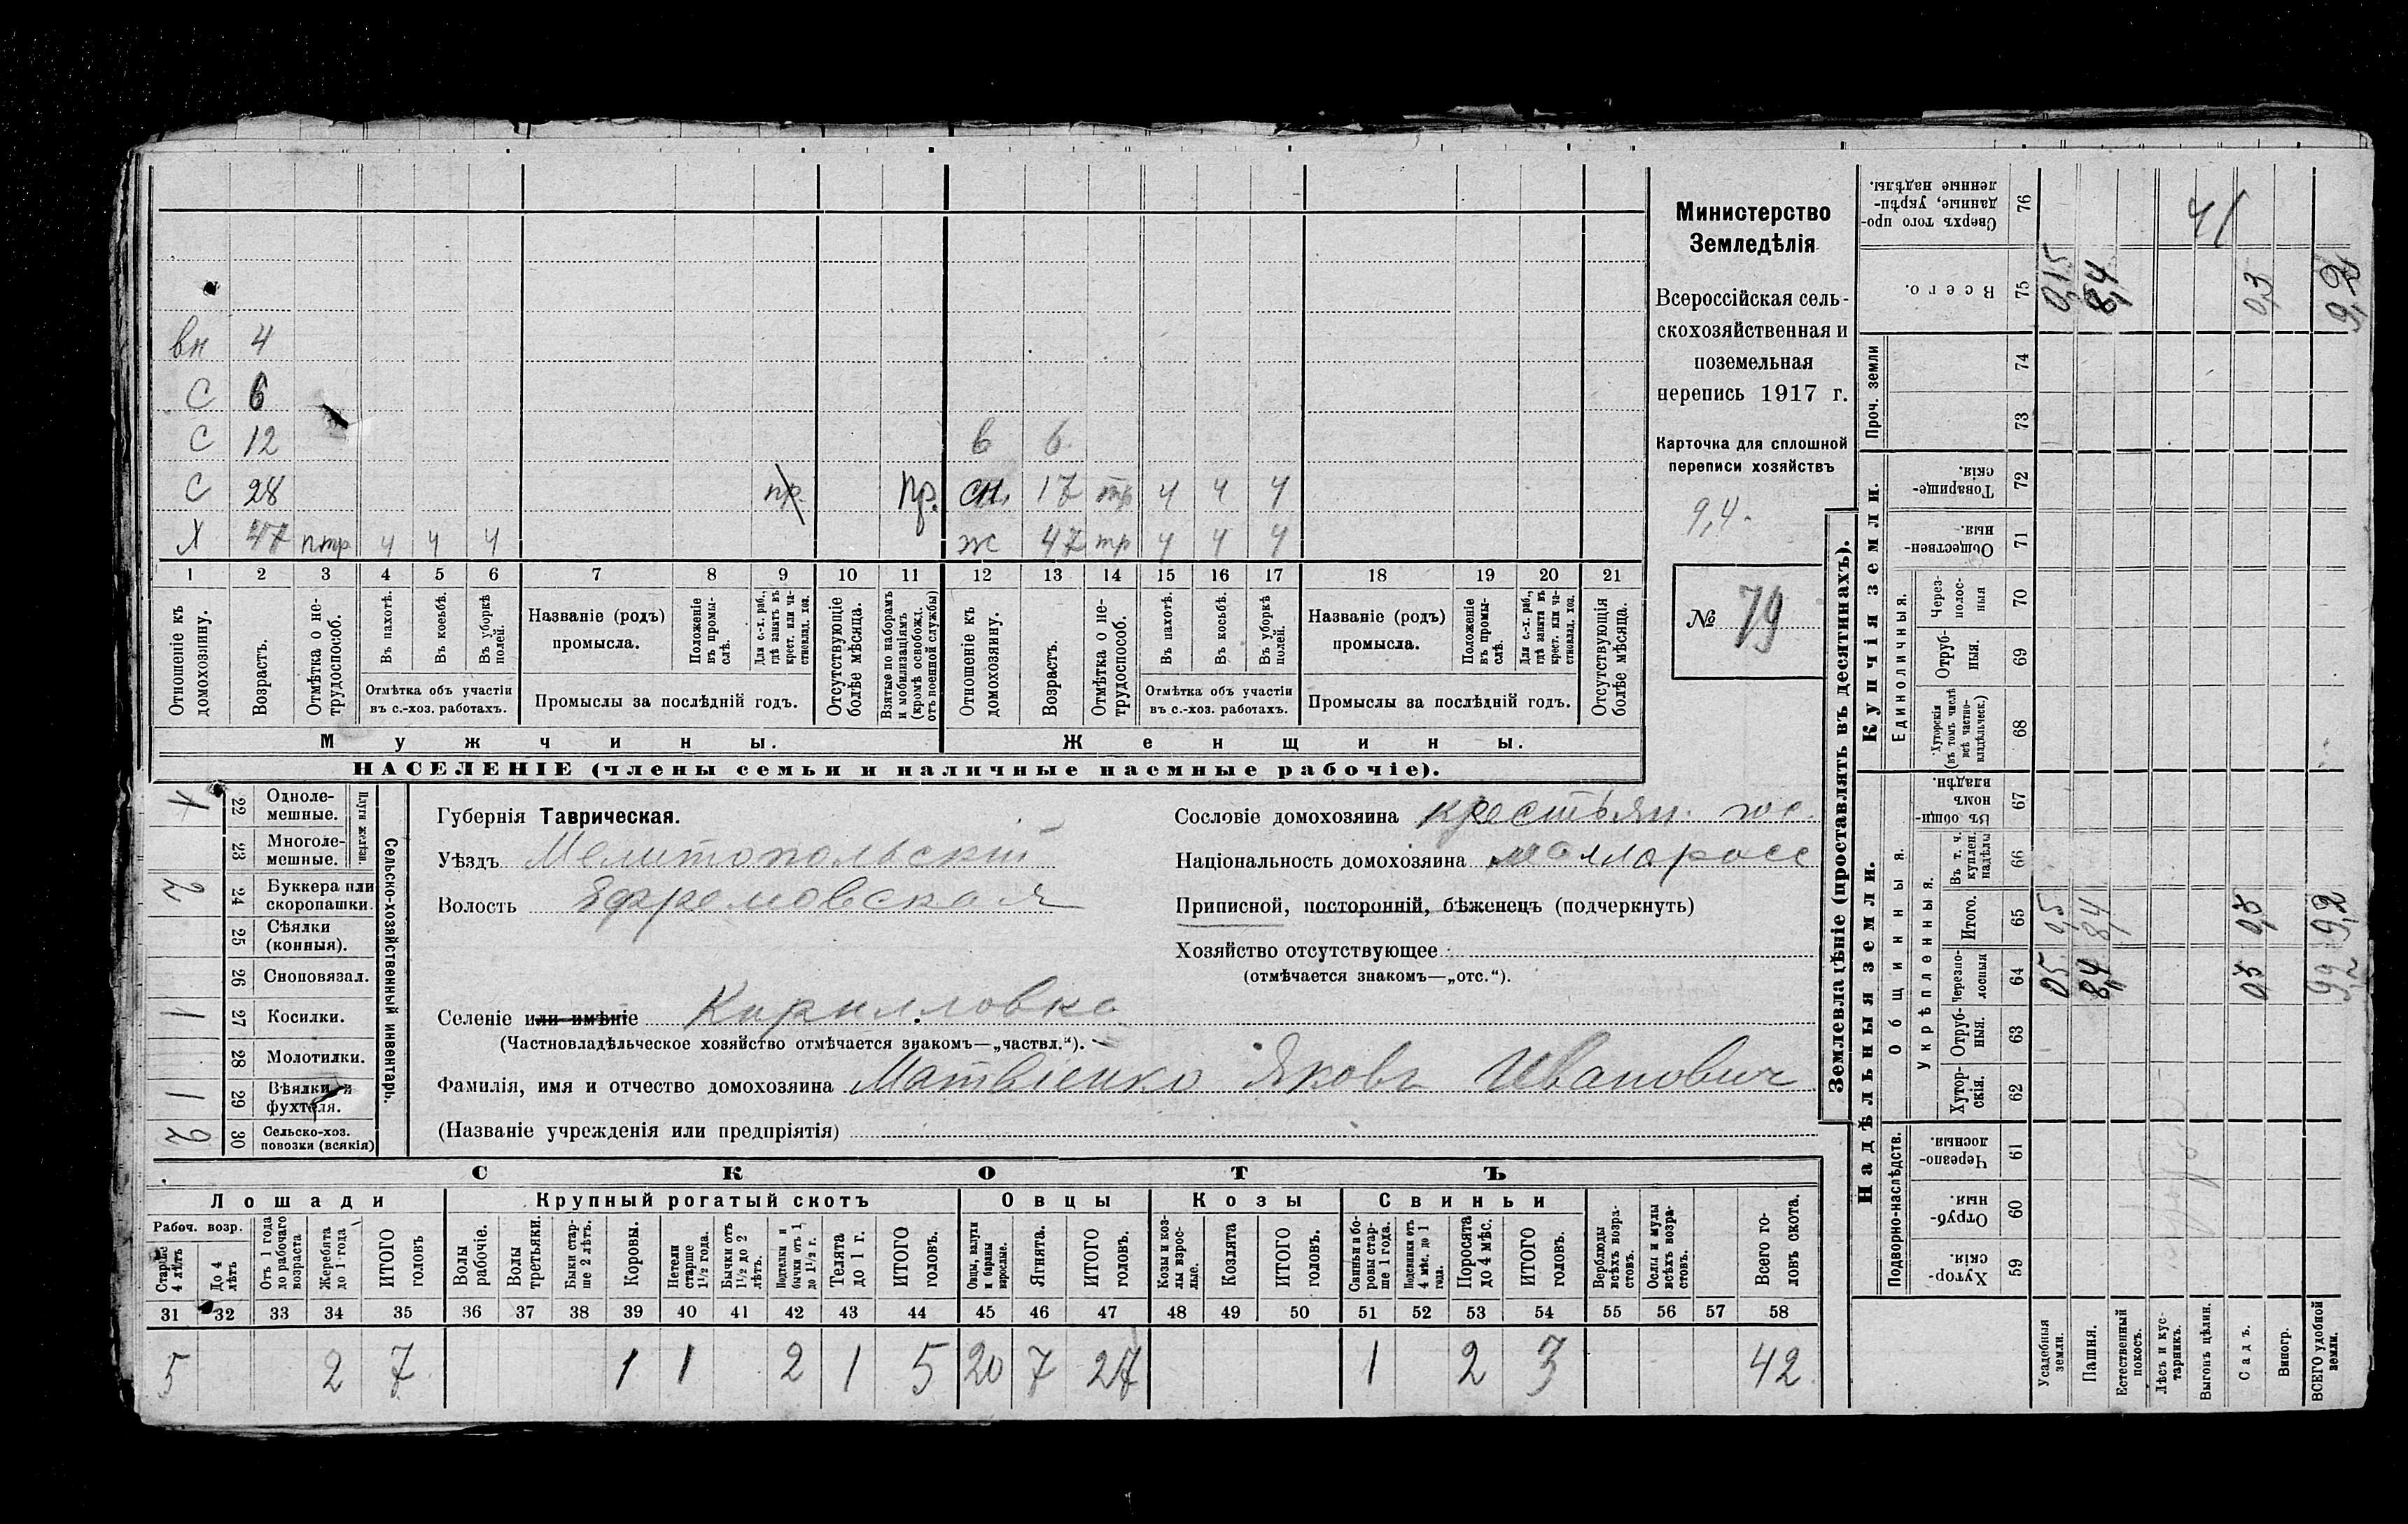 вн 4
С 6
С 12 в 6
С 28 пр. пр. сн. 17 тр ч ч ч
Х 47 птр ч ч ч ж 47 тр ч ч ч
1 2 3 4 5 6 7 8 9 10 11 12 13 14 15 16 17 18 19 20 21
Отношеніе къ домохозяину.
Возрастъ.
Отмѣтка о нетрудоспособ.
Въ пахотѣ.
Въ косьбѣ.
Въ уборкѣ полей.
Отмѣтка объ участіи
въ с.-хоз. работахъ.
Названіе (родъ)
промысла.
Положеніе въ промыслѣ.
Для с.-х. раб., гдѣ занятъ въ крест. или частновлад. хоз.
Промыслы за послѣдній годъ.
Отсутствующіе болѣе мѣсяца.
Взятые по наборамъ и мобилизаціямъ (кромѣ освобожд. отъ военной службы)
Отношеніе къ домохозяину.
Возрастъ.
Отмѣтка о нетрудоспособ.
Въ пахотѣ.
Въ косьбѣ.
Въ уборкѣ полей.
Отмѣтка объ участіи
въ с.-хоз. работахъ.
Названіе (родъ)
промысла.
Положеніе въ промыслѣ.
Для с.-х. раб., гдѣ занята въ крест. или частновлад. хоз.
Промыслы за послѣдній годъ.
Отсутствующія болѣе мѣсяца.
Мужчины. Женщины.
НАСЕЛЕНІЕ (члены семьи и наличные наемные рабочіе).
Министерство
Земледѣлія
Всероссійская сель-
скохозяйственная и
поземельная
перепись 1917 г.
Карточка для сплошной
переписи хозяйствъ
9,4.
№ 79
Сельско-хозяйственный инвентарь.
Плуги желѣзн.
1 22 Одноле-
мешные.
23 Многоле-
мешные.
2 24 Буккера или
скоропашки.
25 Сѣялки
(конныя).
26 Сноповязал.
1 27 Косилки.
28 Молотилки.
1 29 Вѣялки и
фухтеля.
2 30 Сельско-хоз.
повозки (всякія)
Губернія Таврическая.
Уѣздъ Мелитопольскій
Волость Ефремовская
Селеніе или имѣніе Кирилловка
(Частновладѣльческое хозяйство отмѣчается знакомъ—„частвл.“).
Фамилія, имя и отчество домохозяина Матвіенко Яковъ Иванович
(Названіе учрежденія или предпріятія)
Сословіе домохозяина крестьян.
Національность домохозяина малларосс
Приписной, посторонній, бѣженецъ (подчеркнуть)
Хозяйство отсутствующее
(отмѣчается знакомъ—„отс.“).
СКОТЪ
Лошади Крупный рогатый скотъ Овцы Козы Свиньи
Рабоч. возр.
Старше 4 лѣтъ
До 4 лѣтъ
Отъ 1 года до рабочаго возраста
Жеребята до 1 года
ИТОГО головъ
Волы рабочіе.
Волы третьяки.
Быки старше 2 лѣтъ.
Коровы.
Нетели старше 1½ года.
Бычки отъ 1½ до 2 лѣтъ.
Подтелки и бычки отъ 1 до 1½ г.
Телята до 1 г.
ИТОГО головъ.
Овцы, валухи и бараны взрослые.
Ягнята.
ИТОГО головъ.
Козы и козлы взрослые.
Козлята
ИТОГО головъ.
Свиньи и боровы старше 1 года.
Подсвинки отъ 4 мѣс. до 1 года.
Поросята до 4 мѣс.
ИТОГО головъ.
Верблюды всѣхъ возрастовъ.
Ослы и мулы всѣхъ возрастовъ.
Всего головъ скота.
31 32 33 34 35 36 37 38 39 40 41 42 43 44 45 46 47 48 49 50 51 52 53 54 55 56 57 58
5 2 7 1 1 2 1 5 20 7 27 1 2 3 42
Землевладѣніе (проставлять въ десятинахъ).
Надѣльныя земли. Купчія земли. Проч. земли
Подворно-наслѣдств.
Общинныя.
Укрѣпленныя.
Единоличныя.
Хуторскія. 59
Отрубныя. 60
Черезполосныя. 61
Хуторскія. 62
Отрубныя. 63
Черезполосныя 64
Итого. 65
Въ т. ч. куплен. надѣлы 66
Въ общинномъ владѣн. 67
Хуторскія (въ томъ числѣ всѣ частновладѣльческ.) 68
Отрубныя 69
Черезполосныя 70
Общественныя. 71
Товарищескія. 72
73
74
Всего. 75
Сверхъ того проданные, укрѣпленные надѣлы. 76
Усадебныя земли. 0,5 0,5 0,15
Пашня. 8,4 8,4 8,4
Естественный покосъ.
Лѣсъ и кустарникъ.
Выгонъ цѣлин.
Садъ. 0,3 0,3 0,3
Виногр.
ВСЕГО удобной земли. 9,2 9,2 9,2